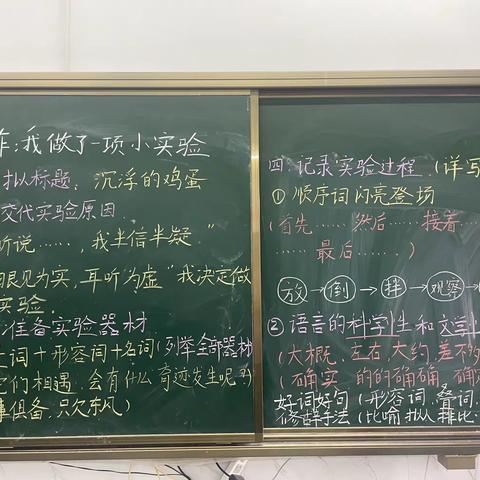 作:我做了一项小实验
拟标题: 沉浮的鸡蛋
交代实验原因
听说……,我半信半疑"
眼见为实,耳听为虚"我决定做
实验.
:准备实验器材
词+形容词+名词(列举全部器材
它们相遇,会有什么奇迹发生呢
事俱备,只欠东风)
四.记录实验过程.(详写
① 顺序词闪亮登场
(首先……然后……接着……
……最后……)
放→倒→拌→观察→
② 语言的科学性和文学性
(大概、左右、大约、差不多
(确实 的的确确、确
好词好句(形容词、叠词、
修辞手法(比喻、拟人、排比